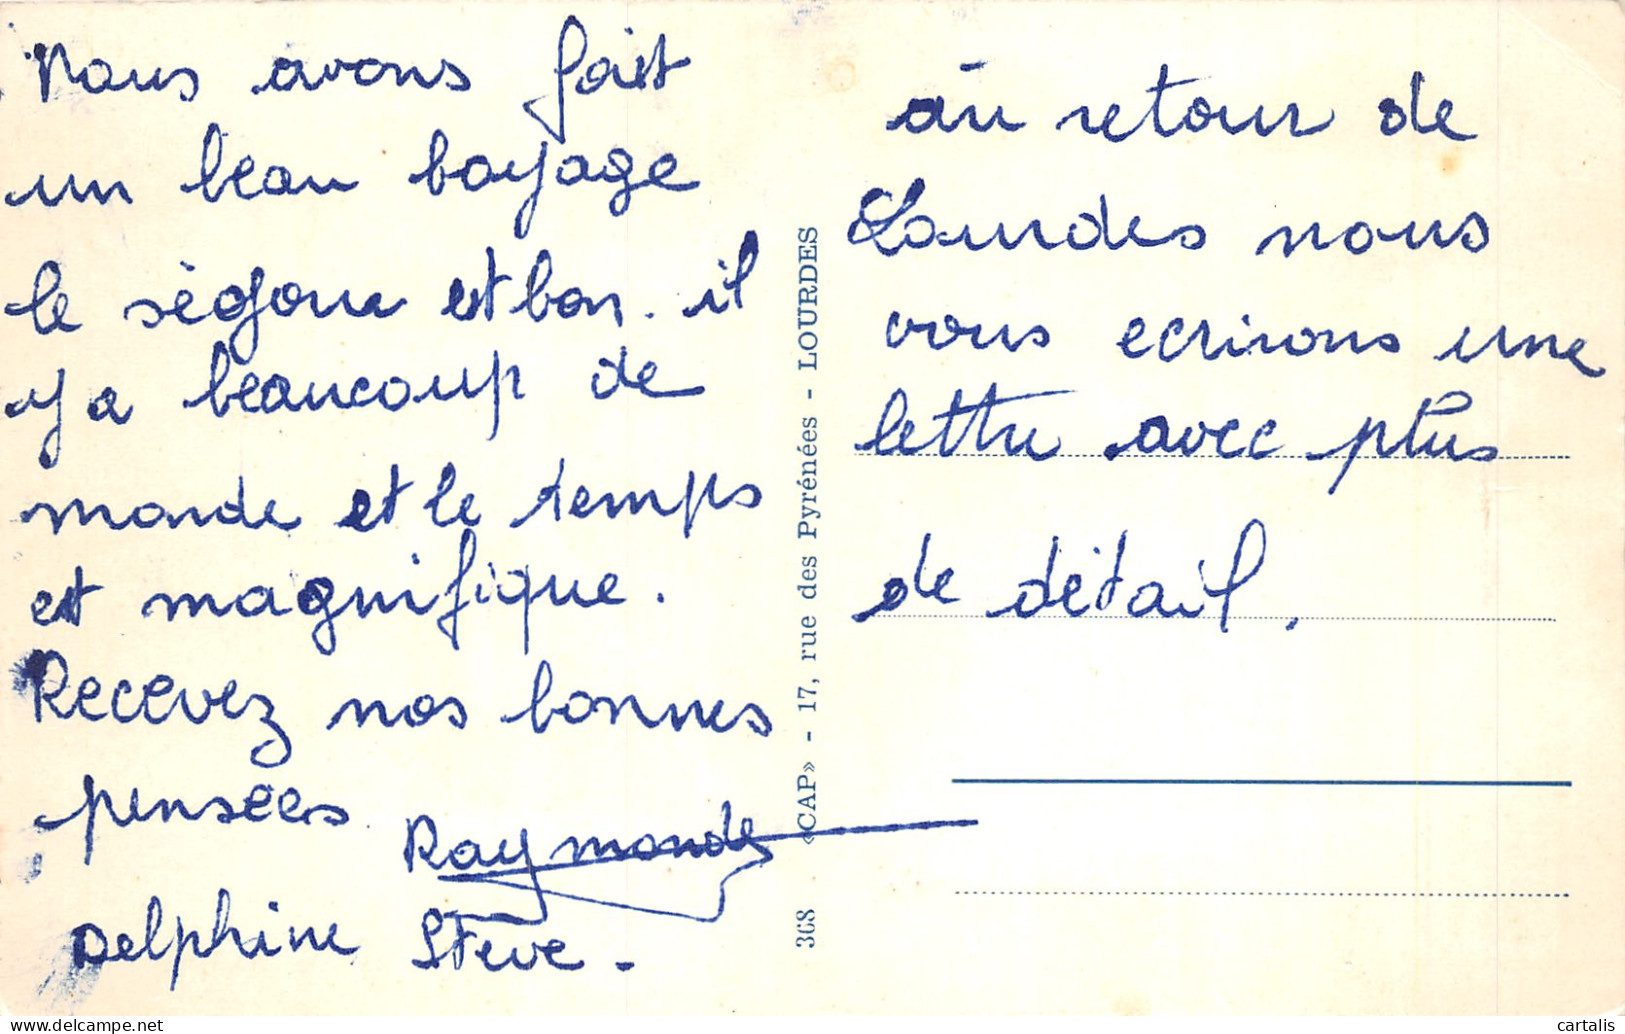 Nous avons fait
un beau boyage
le séjour est bon. il
y a beaucoup de
monde et le temps
est magnifique.
Recevez nos bonnes
pensées
Raymonde
Delphine Steve.
368 «CAP» - 17, rue des Pyrénées - LOURDES
au retour de
Lourdes nous
vous ecrirons une
lettre avec plus
de détail.
delcampe.net
cartalis